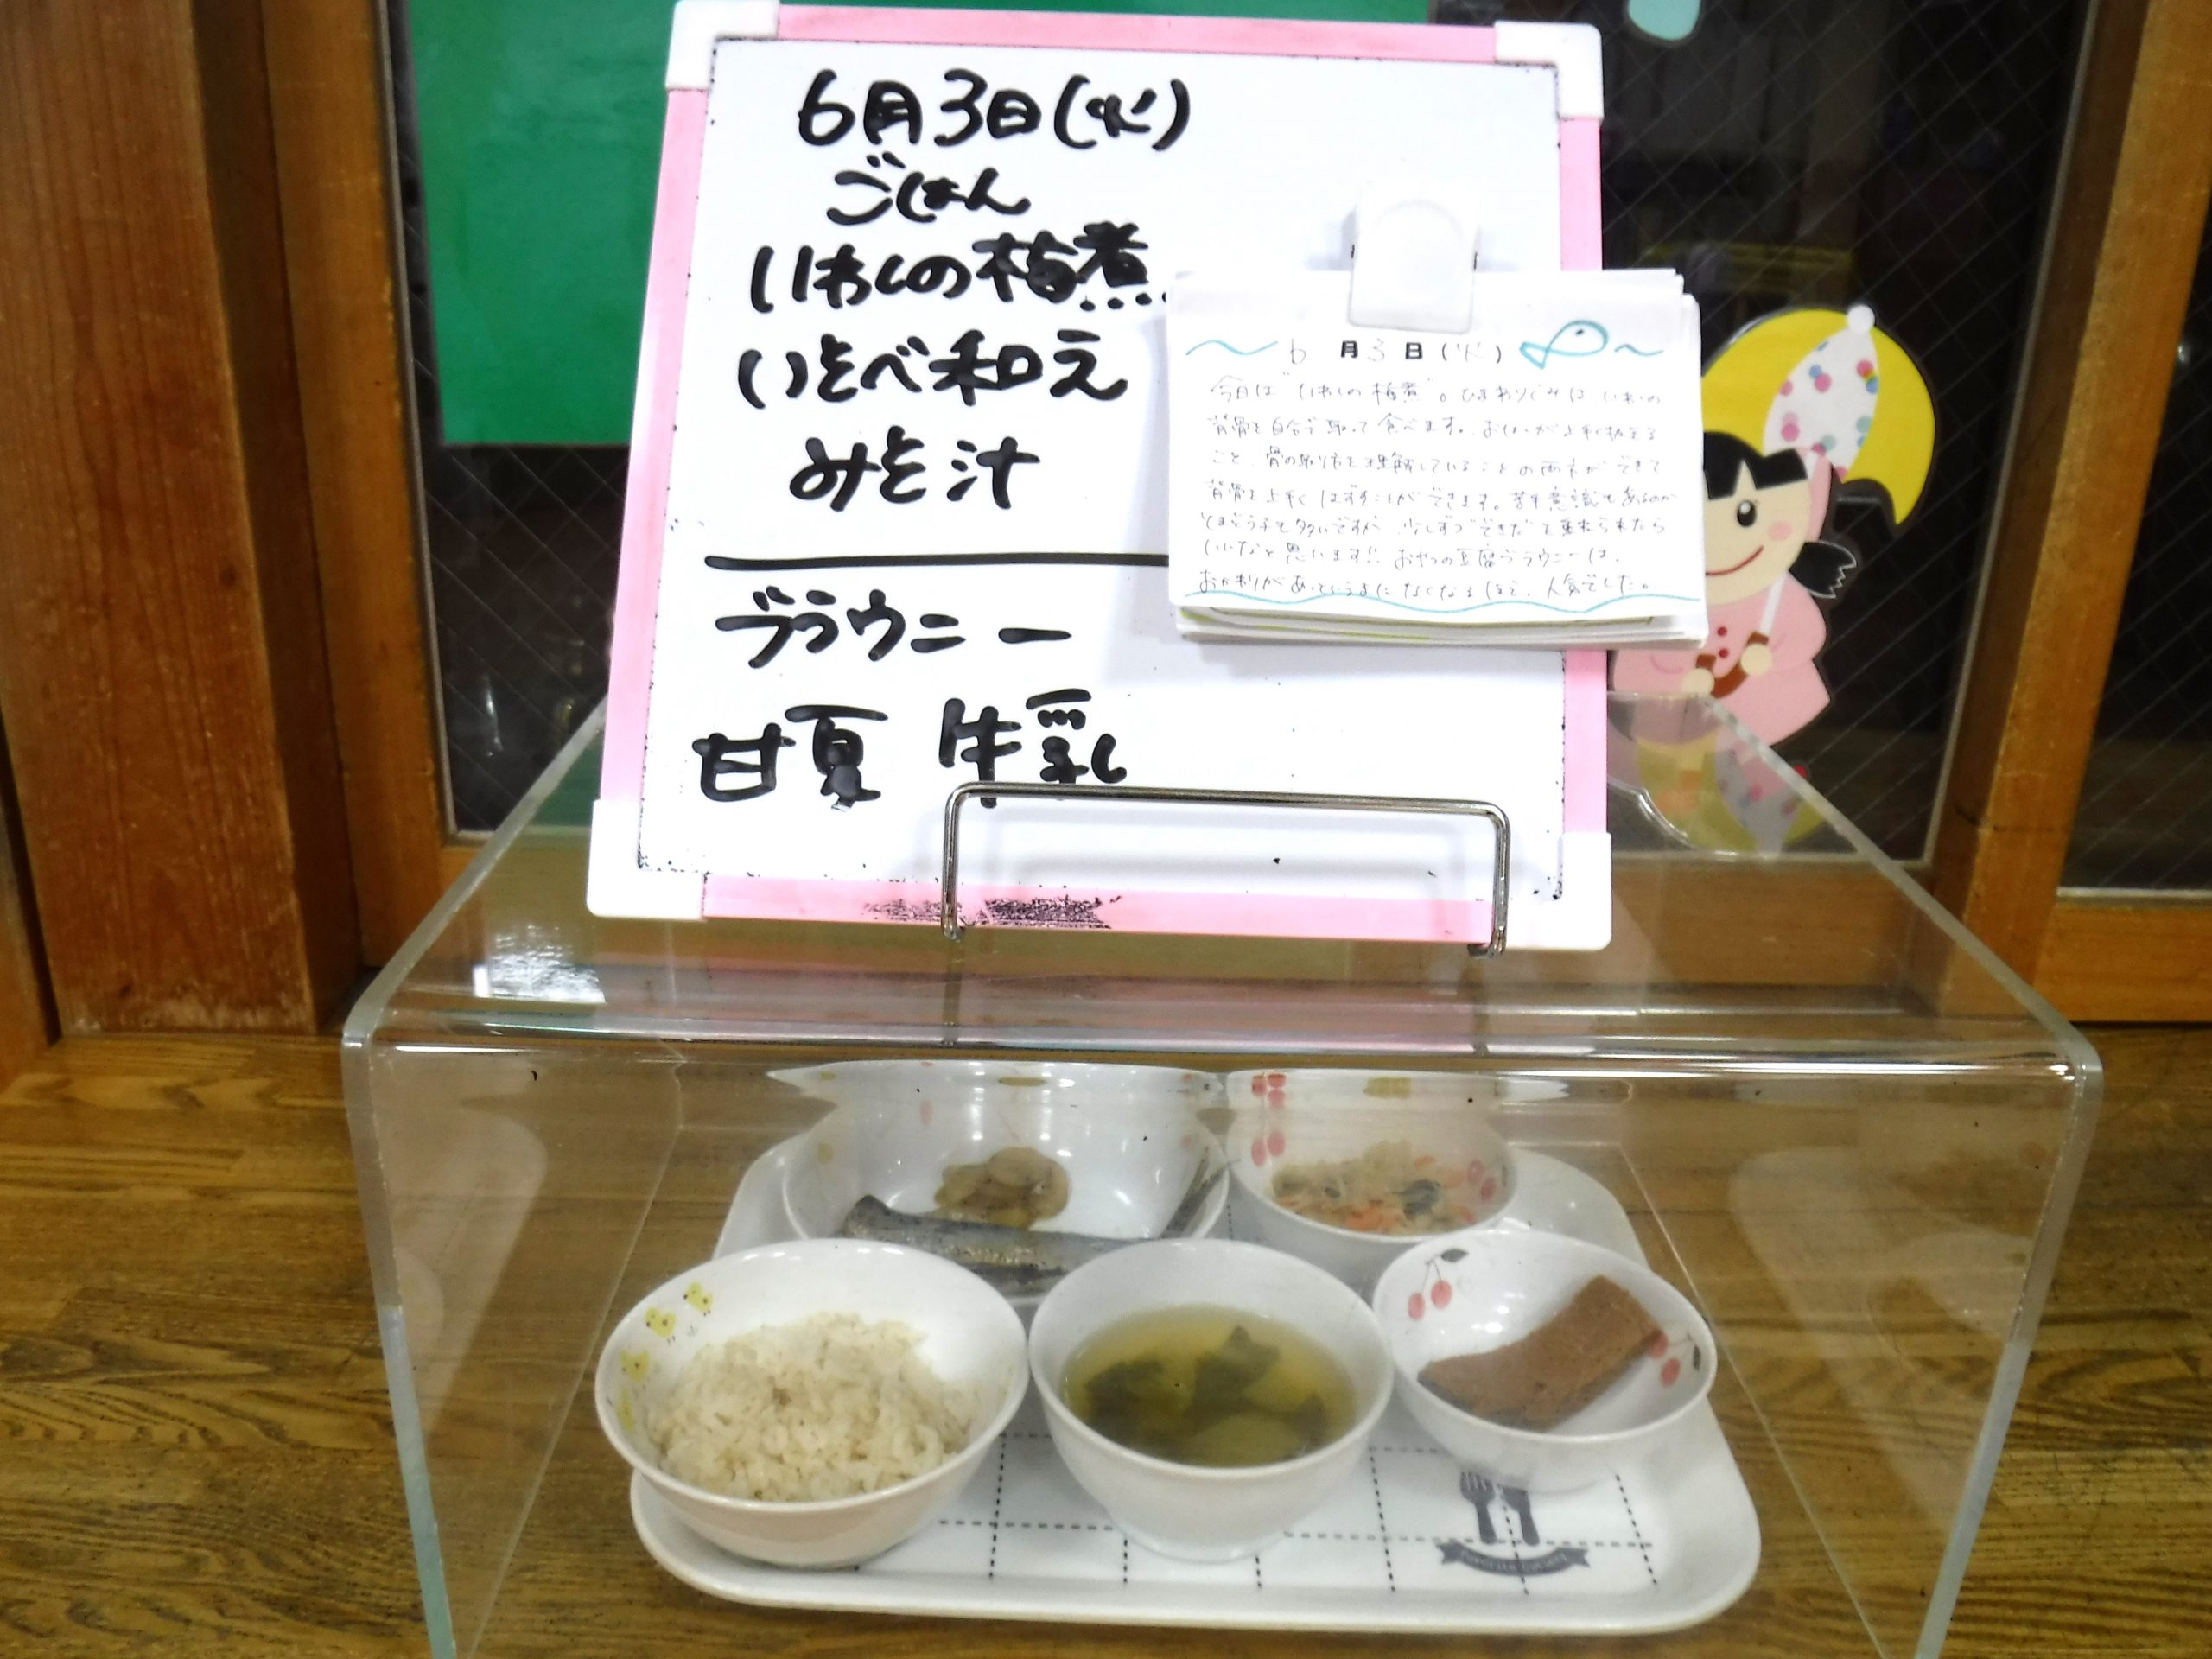 6月3日(火)
ごはん
いわしの梅煮
いそべ和え
みそ汁
ブラウニー
甘夏 牛乳
6月3日(火)
今日は"いわしの梅煮"。ひまわりぐみはいわしの
背骨を自分で取って食べます。おはしが上手に扱える
こと、骨の取り方を理解していることの両方ができて
背骨を上手くはずすことができます。苦手意識もあるのか
とまどう子も多いですが、少しずつ"できた"を重ねられたら
いいなと思います!! おやつの豆腐ブラウニーは、
おかわりがあっというまになくなるほど、人気でした。